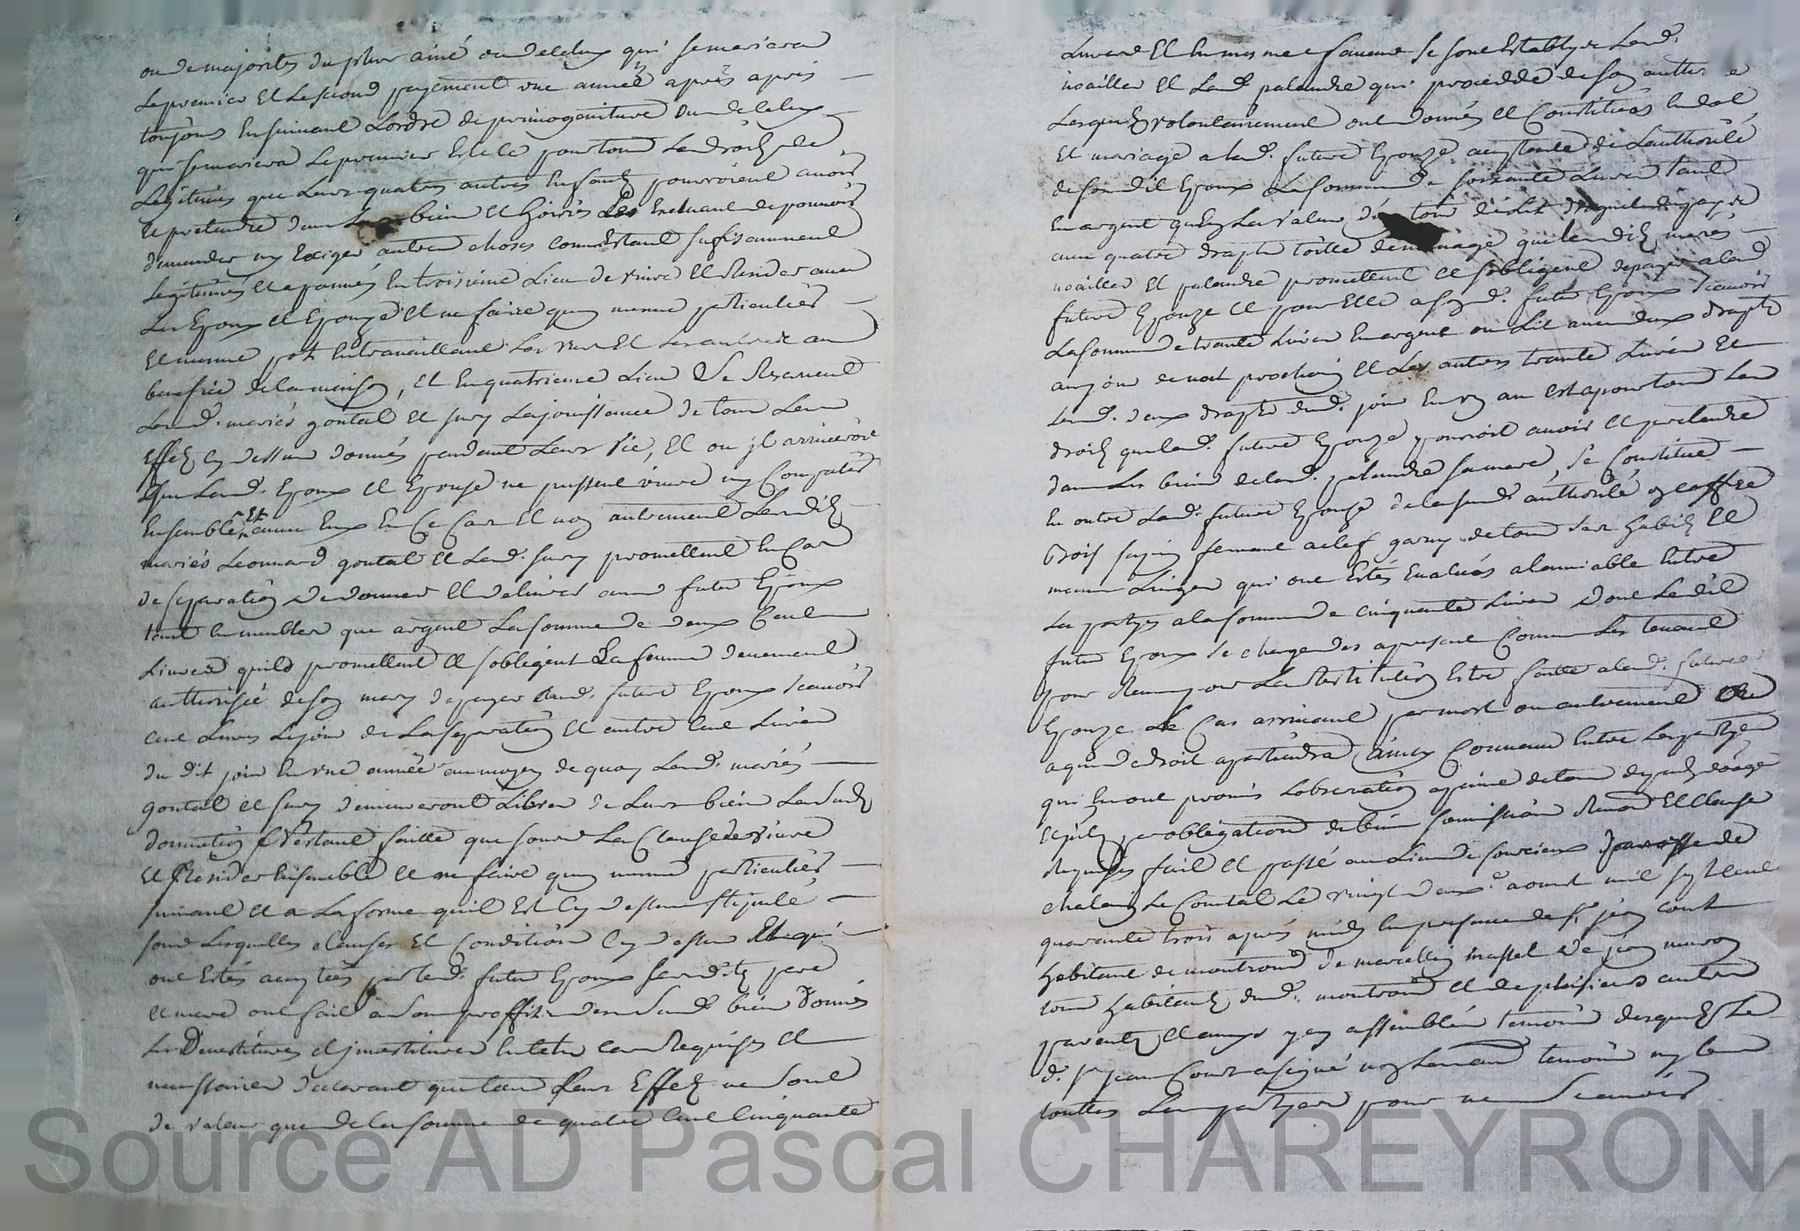 ou de majorites du plus ainé ou de celux qui se mariera
le premier et le second payement une année après après
toujours en suivant lordre de primogeniture ou de celux
qui se mariera le premier et ce pour tous les droits de
legitimes que leurs quatres autres enfants pourroient avoir
et pretendre dans bien et hoiries Les Excluant de pouvoir
demander ny Exiger autres choses comme Estant sufisamment
legitimés et apanés En troisieme Lieu de vivre et Resider avec
Les Epoux et Epouze et ne faire quun mesme particuliers
et mesme pot En travaillant les uns Et les autres au
benefice de la maison, et En quatrieme Lieu Se Reservent
Lesd. mariés gontal et jury La jouissance de tous Leurs
Effets cy dessus donnés pendant Leurs Vie, Et ou il arriveroit
que Lesd. Epoux et Epouse ne pussent vivre ny Compatir
Ensemble Et avec Eux En Ce Cas Et non autrement Lesdits
mariés Leonnard gontal et Lad. jury promettent En Cas
de separation de donner Et delivrer aux futur Epoux
tant En meubles que argent La somme de deux Cent
Livres quils promettent et sobligent La femme deuement
authorisée de son mary de payer aud. futur Epoux scavoir
cent Livres Le jour de La separation et autre cent Livres
du dit jour En une année au moyen de quoy Lesd. mariés
gontal et jury demeureront Libres de Leurs biens Lesdits
donnation nestant faitte que sous La Clause de vivre
et Resider Ensemble et ne faire quun mesme particuliers
suivant et a La forme quil Est Cy dessus stipulé
sous Lesquelles clauses Et Conditions Cy dessus Et qui
ont Estés acceptées par led. futur Epoux Lesdits pere
et mere ont fait a son proffit des susd. bien donnés
Les Devestitures et jnvestitures En tel cas Requises et
necessaires declarant que tous Leurs Effets ne sont
de valeur que de la somme de quatre cent Cinquante
Livres Et En mesme faveur se sont Establys Led.
noailles et Lad. palandre qui procedde de son authorité
Lesquels volontairement ont donnés et Constitués En dot
et mariage a lad. future Epouze acceptante de Lauthorité
de son dit Epoux La somme de soixante Livres tant
En argent quen La valeur de
avec quatre draps toille de menage que lesdits mariés
noailles et palandre promettent et sobligent de payer a lad.
future Epouze et pour Elle a sond. futur Epoux scavoir
La somme de trante Livres En argent un Lit avec deux draps
au jour de noel prochain et Les autres trante Livres et
Lesd. deux draps dud. jour En un an et a pour tous Les
droits que lad. future Epouze pouvroit avoir et pretendre
dans Les biens de lad. palandre sa mere, se Constitue
En outre Lad. future Epouze de la susd. authorité un coffre
bois sapin fermant a clef garny de tous ses habits et
menu Linge qui ont Estés Evalués a lamiable Entre
Les partyes a la somme de cinquante Livres dont Ledit
futur Epoux se charge des a present Comme Les tenant
pour Recus pour La Restitution Estre faitte a lad. future
Epouze Le Cas arrivant par mort ou autrement
a qui de droit apartiendra Ainsy Convenu Entre Les partyes
qui En ont promis Lobservation a peine de tous depens domages
Et jnt. par obligation de biens soumissions Renon Et Clauses
Requises fait et passé au Lieu de sourcieux paroisse de
chalain Le Comtal Le vingt deux e. aoust mil sept cent
quarante trois apres midy En presence de sr. jean court
habitant de montrond de marcellin massel et de jean
tous habitants dud. montrond et de plusieurs autres
parents et amys y assemblés temoins desquels Le
d. sr. jean Court a signé non Les autres temoins ny Les
touttes Les partyes pour ne scavoir
Source AD Pascal CHAREYRON